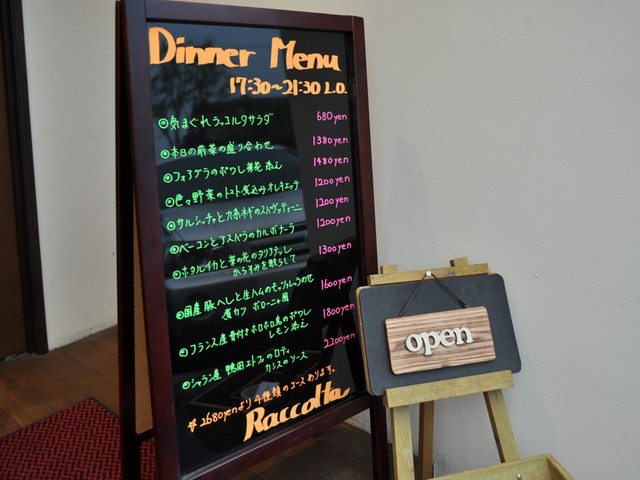 Dinner Menu
17:30～21:30 L.O.
◎気まぐれラッコルタサラダ 680yen
◎本日の前菜の盛り合わせ 1380yen
◎フォアグラのポワレ 菜花添え 1480yen
◎色々野菜のトマト煮込みオレキエッテ 1200yen
◎サルシッチャと九条ネギのスパゲッティーニ 1200yen
◎ベーコンとアスパラのカルボナーラ 1200yen
◎ホタルイカと菜の花のタリアテッレ
からすみを散らして 1300yen
◎国産豚ヘレと生ハムのモッツァレラのせ
煮カツ ボローニャ風 1600yen
◎フランス産骨付きホロホロ鳥のポワレ
レモン添え 1800yen
◎シャラン産 鴨 エトフェのロティ
カシスのソース 2200yen
※2680yenより4種類のコースあります。
Raccolta
open